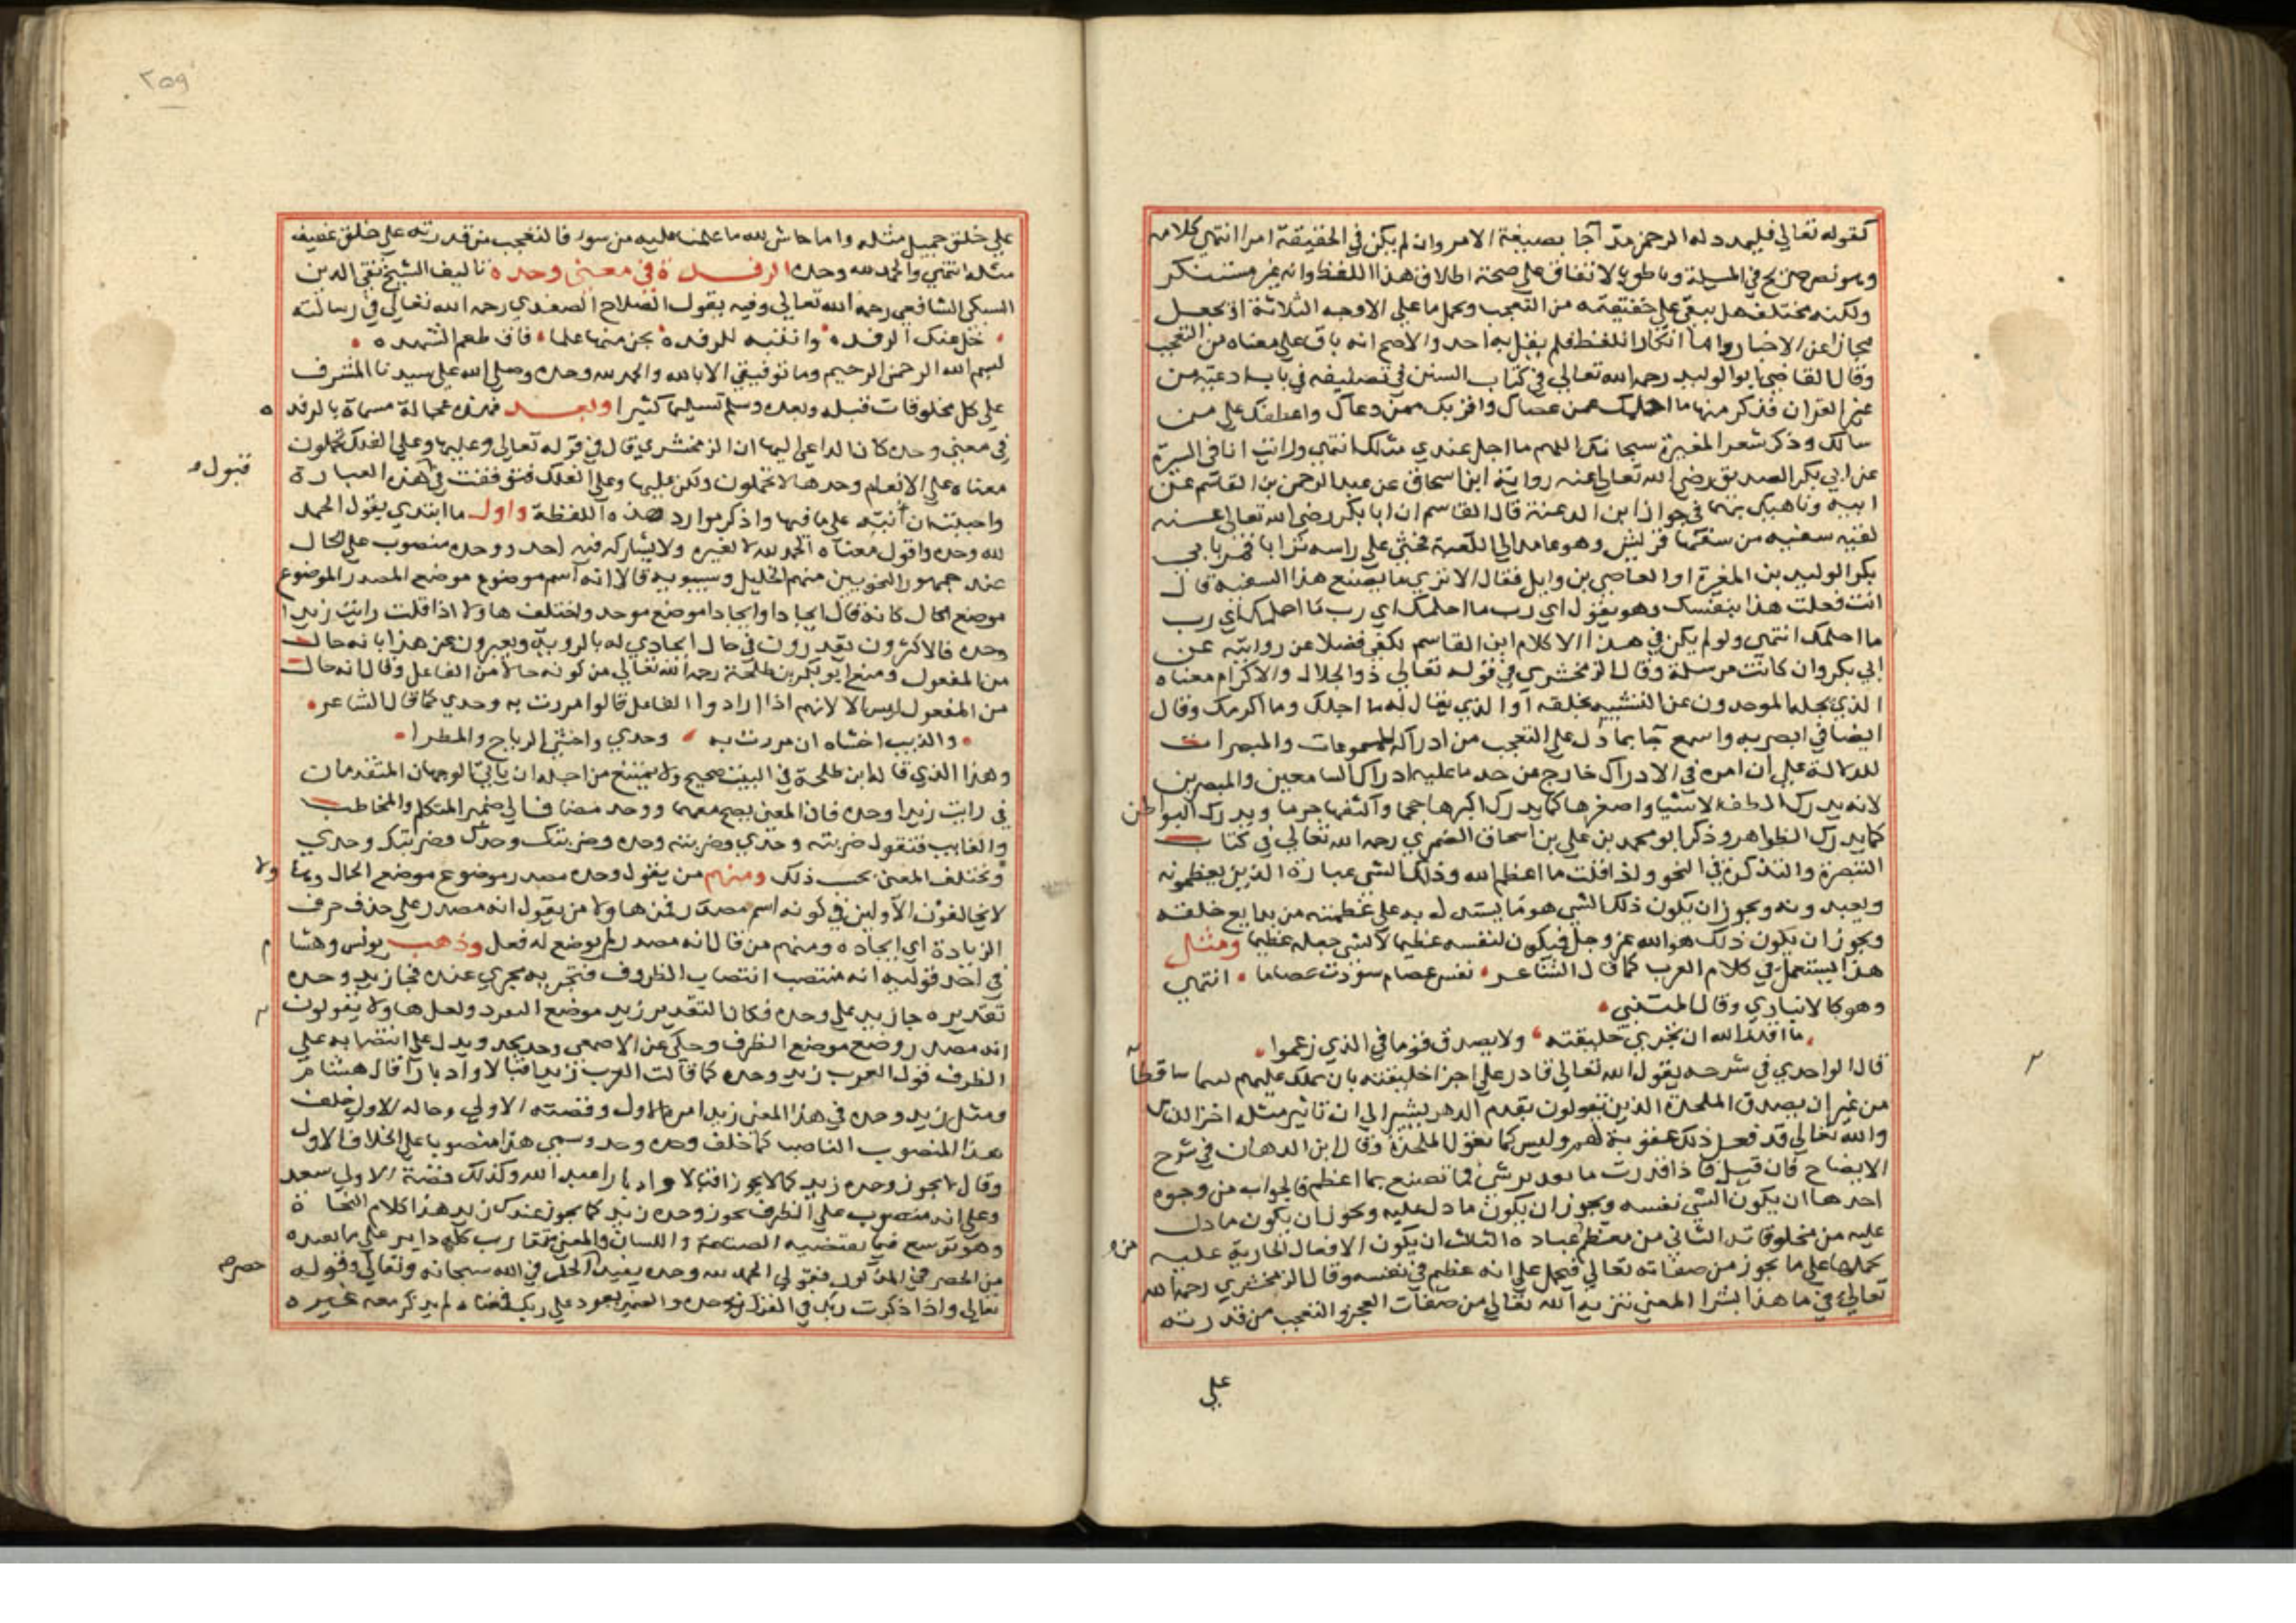 كقوله تعالى فليمدد له الرحمن مدّا جا بصيغة الامر وان لم يكن في الحقيقة امرا انتهى كلامه
وهو نص صريح في المسيلة وناطق بالاتفاق على صحة اطلاق هذا اللفظ وانه غير مستنكر
ولكنه مختلف هل يبقى على حقيقته من التعجب ويحمل ما على الاوجه الثلاثة او يجعل
مجازا عن الاخبار واما انكار اللفظ فلم يقل به احد والاصح انه باق على معناه من التعجب
وقال القاضي ابو الوليد رحمه الله تعالى في كتاب السنن في تصنيفه في باب ادعية من
غير القران فذكر منها ما احلمك عمن عصاك واقربك ممن دعاك واعطفك على من
سالك وذكر شعر المغيرة سبحانك اللهم ما اجل عندي مثلك انتهى ورايت انا في السيرة
عن ابي بكر الصديق رضي الله تعالى عنه رواية ابن اسحاق عن عبد الرحمن بن القاسم عن
ابيه وناهيك بهما في جوار ابن الدغنة قال القاسم ان ابا بكر رضي الله تعالى عنه
لقيه سفيه من سفها قريش وهو عامد الى الكعبة فحثى على راسه ترابا فمر بابي
بكر الوليد بن المغيرة او العاصي بن وايل فقال الا ترى ما يصنع هذا السفيه قال
انت فعلت هذا بنفسك وهو يقول اي رب ما احلمك اي رب ما احلمك اي رب
ما احلمك انتهى ولو لم يكن في هذا الا كلام ابن القاسم لكفى فضلا عن روايته عن
ابي بكر وان كانت مرسلة وقال الزمخشري في قوله تعالى ذو الجلال والاكرام معناه
الذي يجله الموحدون عن التشبيه بخلقه او الذي يقال له ما اجلك وما اكرمك وقال
ايضا في ابصر به واسمع جا بما دل على التعجب من ادراكه للمسموعات والمبصرات
للدلالة على ان امره في الادراك خارج عن حد ما عليه ادراك السامعين والمبصرين
لانه يدرك الطف الاشيا واصغرها كما يدرك اكبرها حجما واكثفها جرما ويدرك البواطن
كما يدرك الظواهر وذكر ابو محمد بن علي بن اسحاق الصمري رحمه الله تعالى في كتاب
التبصرة والتذكرة في النحو واذا قلت ما اعظم الله وذلك الشي عبارة الذين يعظمونه
ويعبدونه ويجوز ان يكون ذلك الشي هو ما يستدل به على عظمته من بدايع خلقه
ويجوز ان يكون ذلك هو الله عز وجل فيكون لنفسه عظيما لا لشي جعله عظيما ومثل
هذا يستعمل في كلام العرب كما قال الشاعر نفس عصام سودت عصاما انتهى
وهو كالانباري وقال المتنبي
ما اقدر الله ان يخزي خليقته ولا يصدق قوما في الذي زعموا
قال الواحدي في شرحه يقول الله تعالى قادر على اخزا خليقته بان يملك عليهم لئيما ساقطا
من غير ان يصدق الملحدة الذين يقولون بقدم الدهر يشير الى ان تاثير مثله اخزا الناس
والله تعالى قد فعل ذلك عقوبة لهم وليس كما يقول الملحدة وقال ابن الدهان في شرح
الايضاح فان قيل فاذا قدرت ما بعد شي فما تصنع بما اعظم فالجواب من وجوه
احدها ان يكون الشي نفسه ويجوز ان يكون ما دل عليه ويجوز ان يكون ما دل
عليه من مخلوقاته الثاني من يعظم عباده الثالث ان يكون الافعال الجارية عليه
يحملها على ما يجوز من صفاته تعالى فيحمل على انه عظم في نفسه وقال الزمخشري رحمه الله
تعالى في ما هذا بشرا المعنى تنزيه الله تعالى من صفات العجز والتعجب من قدرته
على
٢٥٩
على خلق جميل مثله واما حاش لله ما علمنا عليه من سوء فالتعجب من قدرته على خلق عفيف
مثله انتهى والحمد لله وحده الرفدة في معنى وحده تاليف الشيخ تقي الدين
السبكي الشافعي رحمه الله تعالى وفيه يقول الصلاح الصفدي رحمه الله تعالى في رسالته
خل عنك الرقده وانتبه للرفده تجن منها علما فاق طعم الشهده
بسم الله الرحمن الرحيم وما توفيقي الا بالله والحمد لله وحده وصلى الله على سيدنا المشرف
على كل مخلوقات قبله وبعده وسلم تسليما كثيرا وبعد فهذه عجالة مسماة بالرفده
في معنى وحده كان الداعي اليها ان الزمخشري قال في قوله تعالى وعليها وعلى الفلك تحملون
معناه على الانعام وحدها لا تحملون ولكن عليها وعلى الفلك فتوقفت في قبول هذه العبارة
واحببت ان انبه على ما فيها واذكر موارد هذه اللفظة واول ما ابتدي بقول الحمد
لله وحده واقول معناه الحمد لله لا لغيره ولا يشاركه فيه احد ووحده منصوب على الحال
عند جمهور النحويين منهم الخليل وسيبويه قالا انه اسم موضوع موضع المصدر الموضوع
موضع الحال كانه قال ايحادا وايحادا موضع موحد واختلف هاولا اذا قلت رايت زيدا
وحده فالاكثرون يقدرون في حال ايحادي له بالروية ويعبرون عن هذا بانه حال
من المفعول ومنع ابو بكر بن طلحة رحمه الله تعالى من كونه حالا من الفاعل وقال انه حال
من المفعول ليس الا لانهم اذا ارادوا الفاعل قالوا مررت به وحدي كما قال الشاعر
والذيب اخشاه ان مررت به وحدي واخشى الرياح والمطرا
وهذا الذي قاله ابن طلحة في البيت صحيح ولا يمتنع من اجله ان ياتي الوجهان المتقدمان
في رايت زيدا وحده فان المعنى يصح معهما ووحد مضاف الى ضمير المتكلم والمخاطب
والغايب فتقول ضربته وحدي وضربته وحده وضربتك وحدك وضربتك وحدي
وتختلف المعنى بحسب ذلك ومنهم من يقول وحده مصدر موضوع موضع الحال وهاولا
لا يخالفون الاولين في كونه اسم مصدر فمن هاولا من يقول انه مصدر على حذف حرف
الزيادة اي ايجاده ومنهم من قال انه مصدر لم يوضع له فعل وذهب يونس وهشام
في احد قوليه انه منتصب انتصاب الظروف فتجر به يجري عنده فجا زيد وحده
تقديره جا زيد على وحده فكان التقدير زيد موضع التفرد ولعل هاولا يقولون
انه مصدر وضع موضع الظرف وحكى عن الاصمعي وحد يحد ويدل على انتصابه على
الظرف قول العرب زيد وحده كما قالت العرب زيد اقبالا وادبارا قال هشام
ومثل زيد وحده في هذا المعنى زيد امره الاول وقصته الاولى وحاله الاول خلف
هذا المنصوب الناصب كما خلف وحده وحد وسمى هذا منصوبا على الخلاف الاول
وقال لا يجوز وحده زيد كما لا يجوز اقبالا وادبارا عبد الله وكذلك قصة الاولى سعد
وعلى انه منصوب على الظرف يجوز وحده زيد كما يجوز عندك زيد هذا كلام النحاة
وهو توسع فيما يقتضيه الصنعة واللسان والمعنى متقارب كله داير على ما يفيده
من الحصر في المذكور فقولي الحمد لله وحده يفيد حصر الحمد في الله سبحانه وتعالى وقوله
تعالى واذا ذكرت ربك في القران وحده والضمير يعود على ربك فمعناه لم يذكر معه غيره